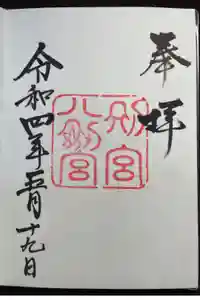 奉拝
別宮
八剣宮
令和四年五月十九日